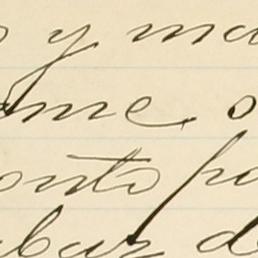 y ma
me o
onto pa
bar d